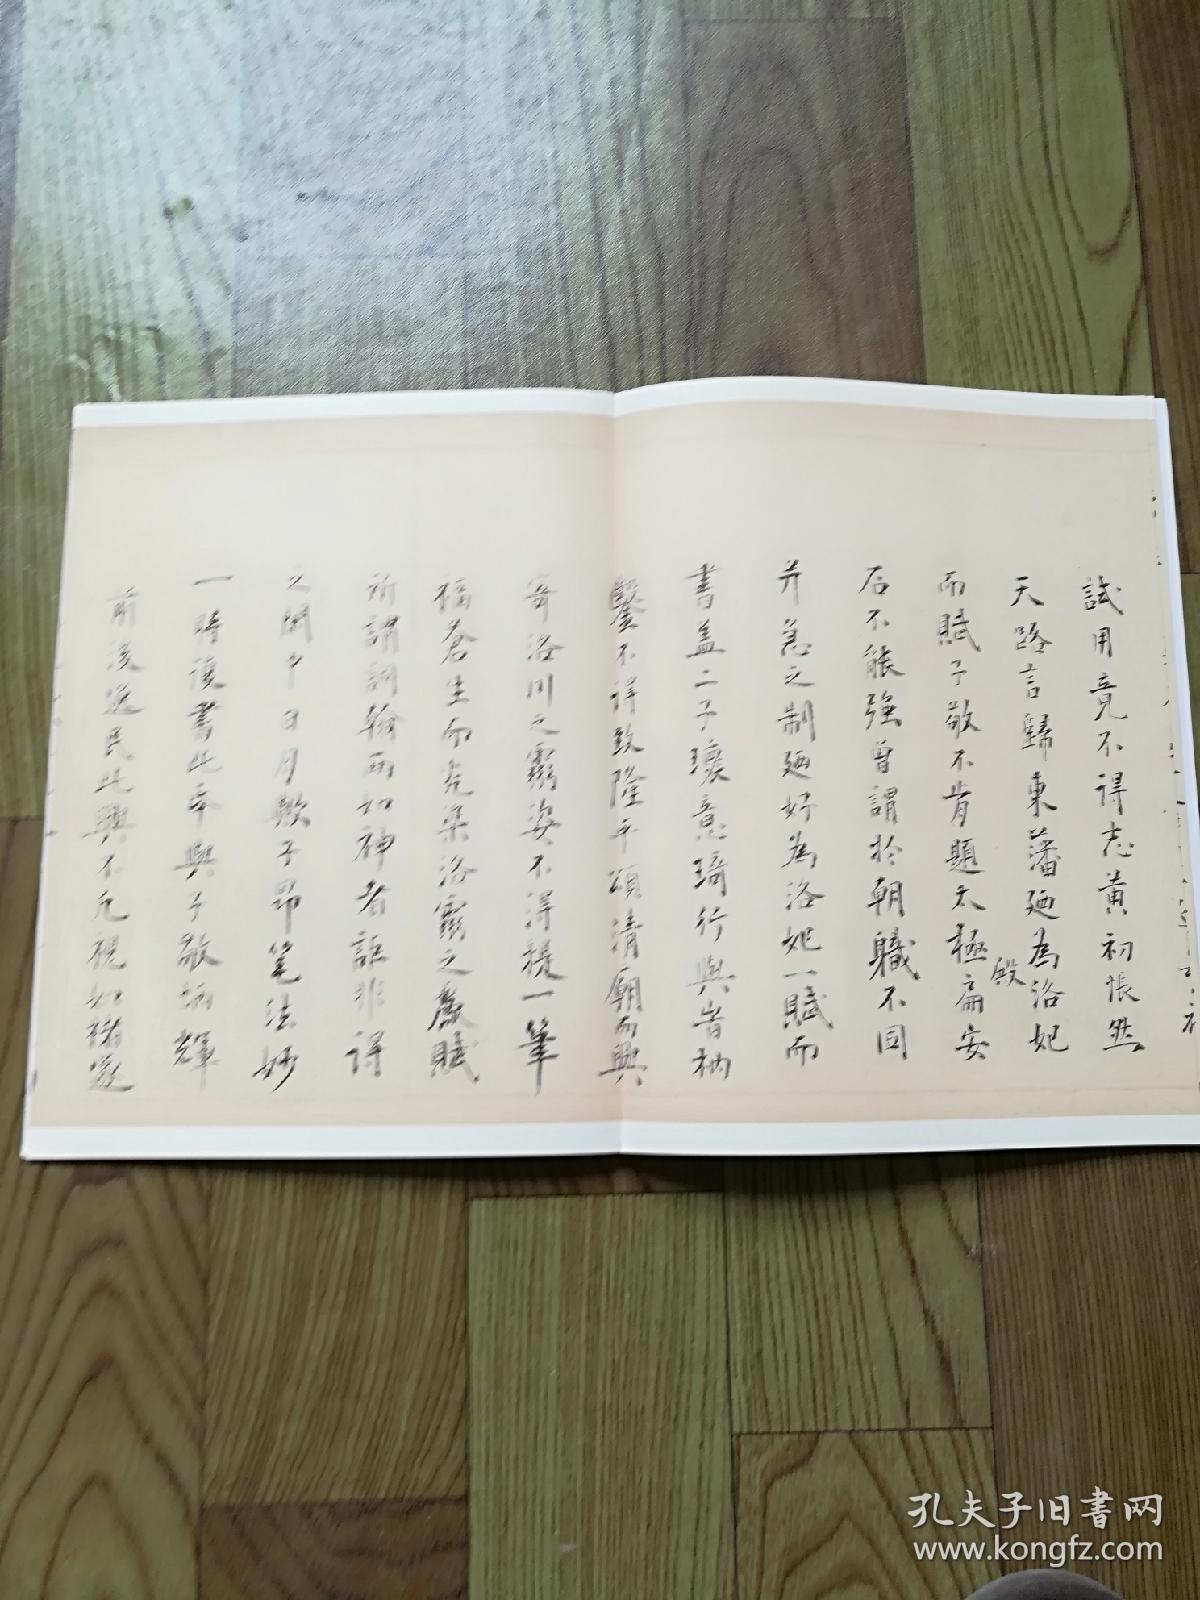 試用竟不得志黄初悵然
天路言歸東藩廼為洛妃
而賦子敬不肯題太極扁安
殿
石不能強曾謂於朝職不同
廼好為洛妃一賦而
書蓋二子瓌意琦行與昔枘
鑿不得致隆平頌清廟而興
寄洛川之靈姿不得援一筆
福蒼生而先染洛靈之賦
所謂詞翰兩如神者詎非得
之開日月歟子昂筆法妙
一時復書此與子敬炳輝
前後逸民此興不凡視如
孔夫子旧書网
www.kongfz.com